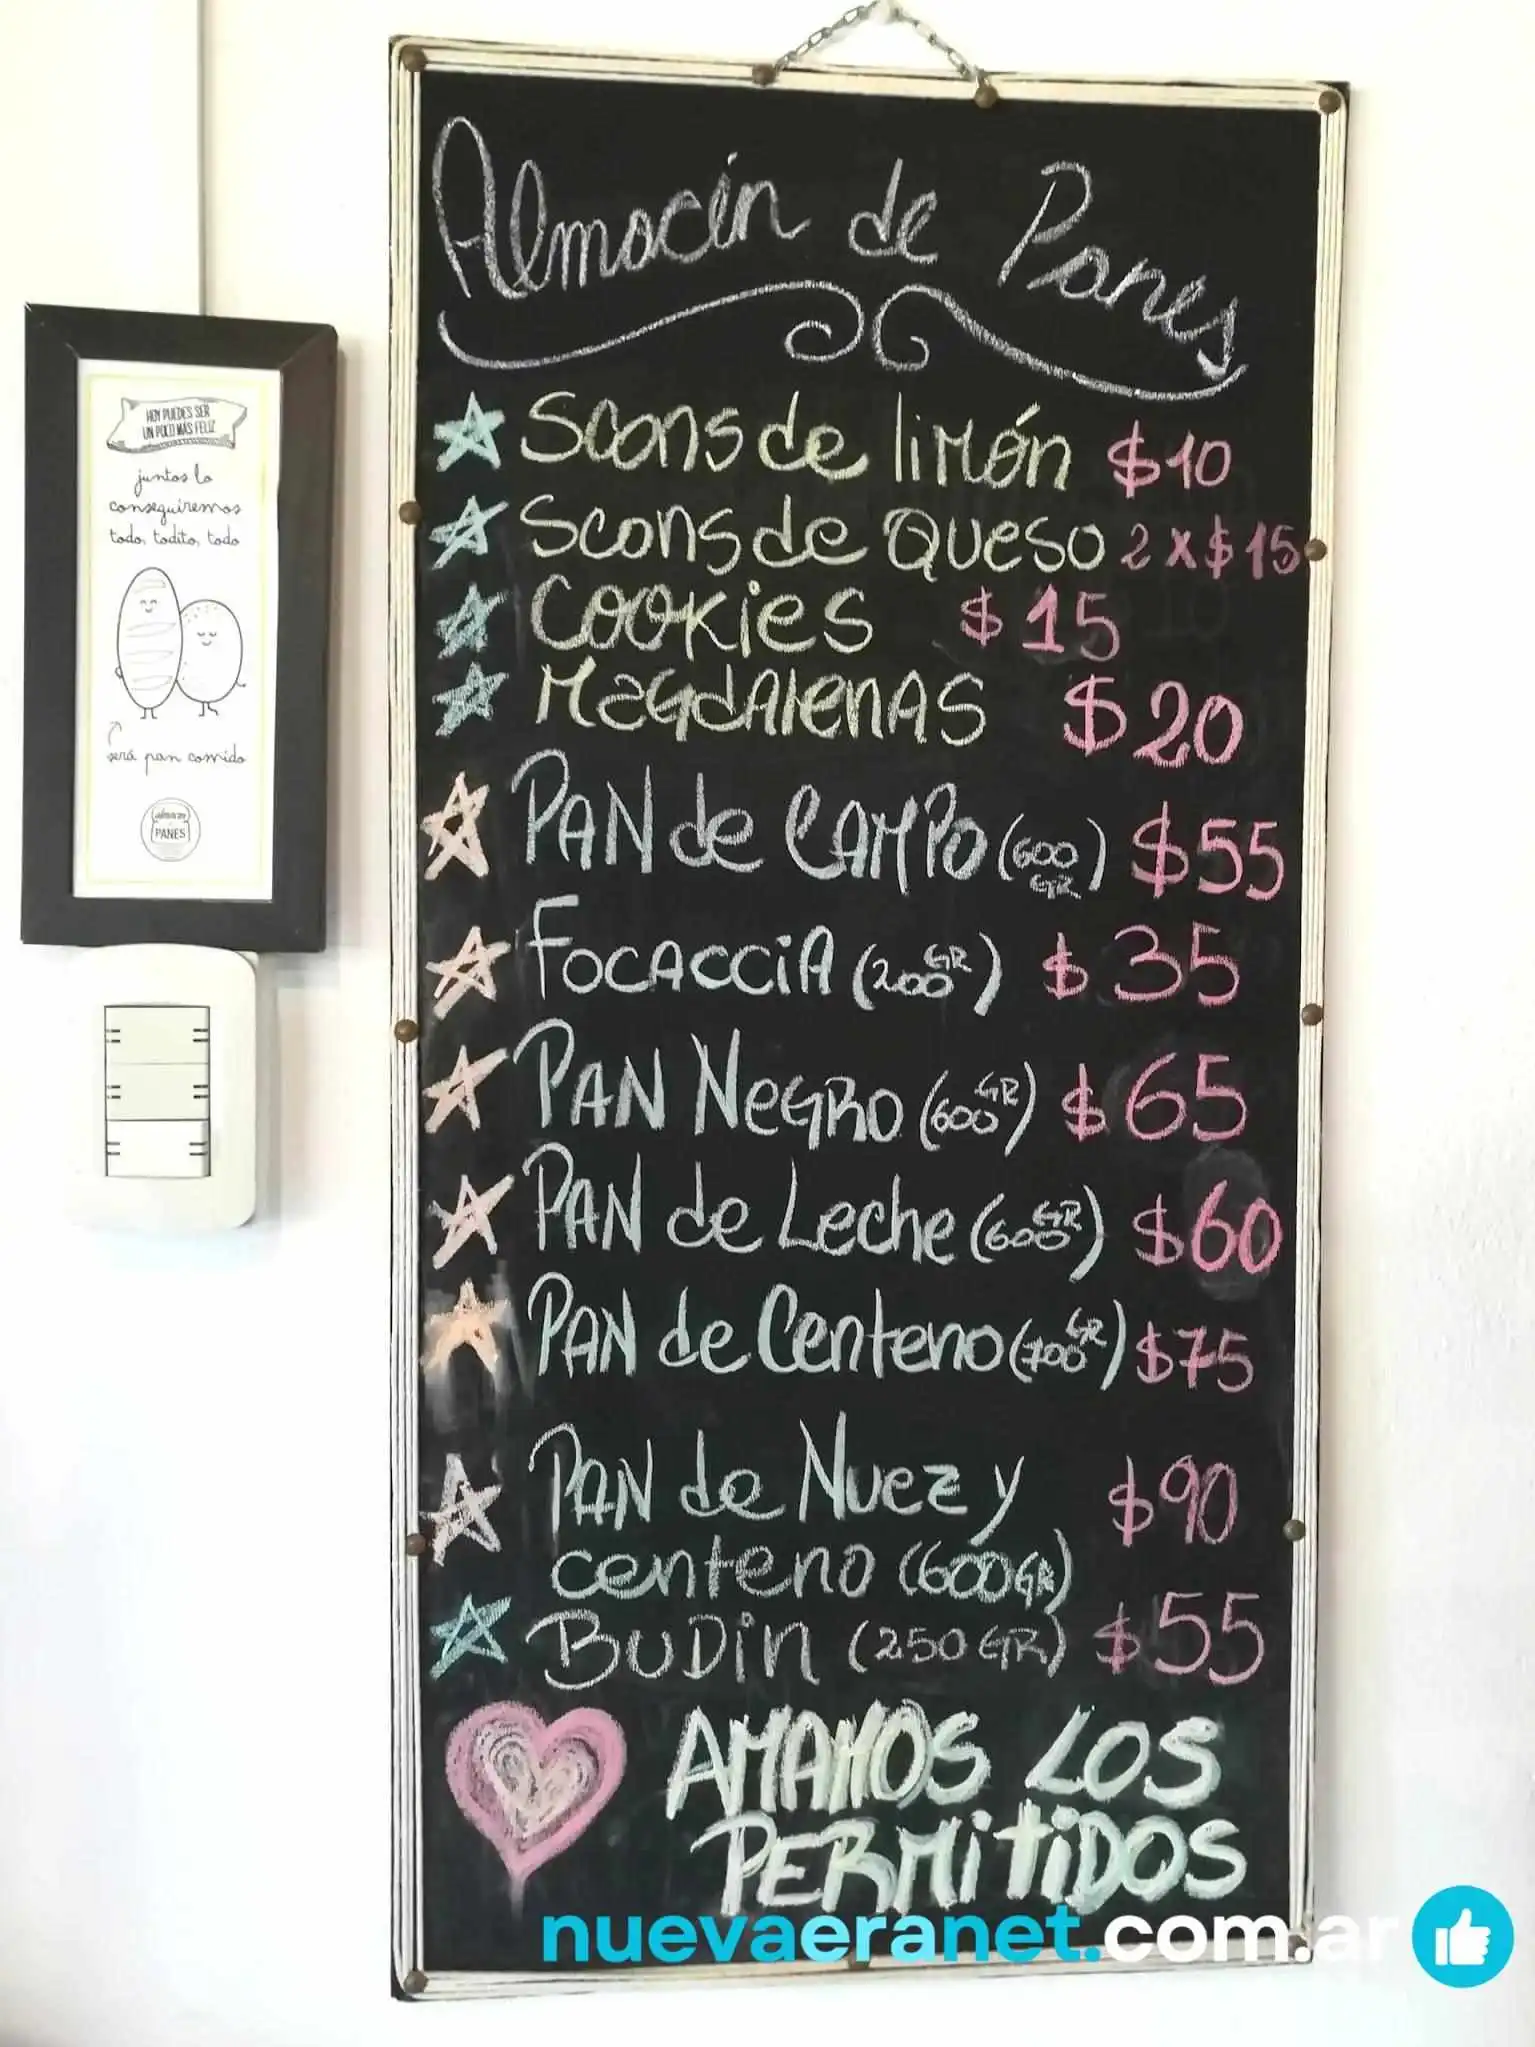 Almacén de Panes
Scons de limón $10
Scons de Queso 2 x $15
Cookies $15
MAGdAlenAS $20
PAN de CAMPO (600 GR) $55
FOCACCiA (200 GR) $35
PAN NeGRO (600 GR) $65
PAN de Leche (600 GR) $60
PAN de Centeno (700 GR) $75
PAN de Nuez y $90
centeno (600 GR)
BUDin (250 GR) $55
AMAMOS LOS
PERMiTiDOS
HOY PUEDES SER
UN POCO MÁS FELIZ
juntos lo
conseguiremos
todo, todito, todo
será pan comido
almacén
PANES
nuevaeranet.com.ar